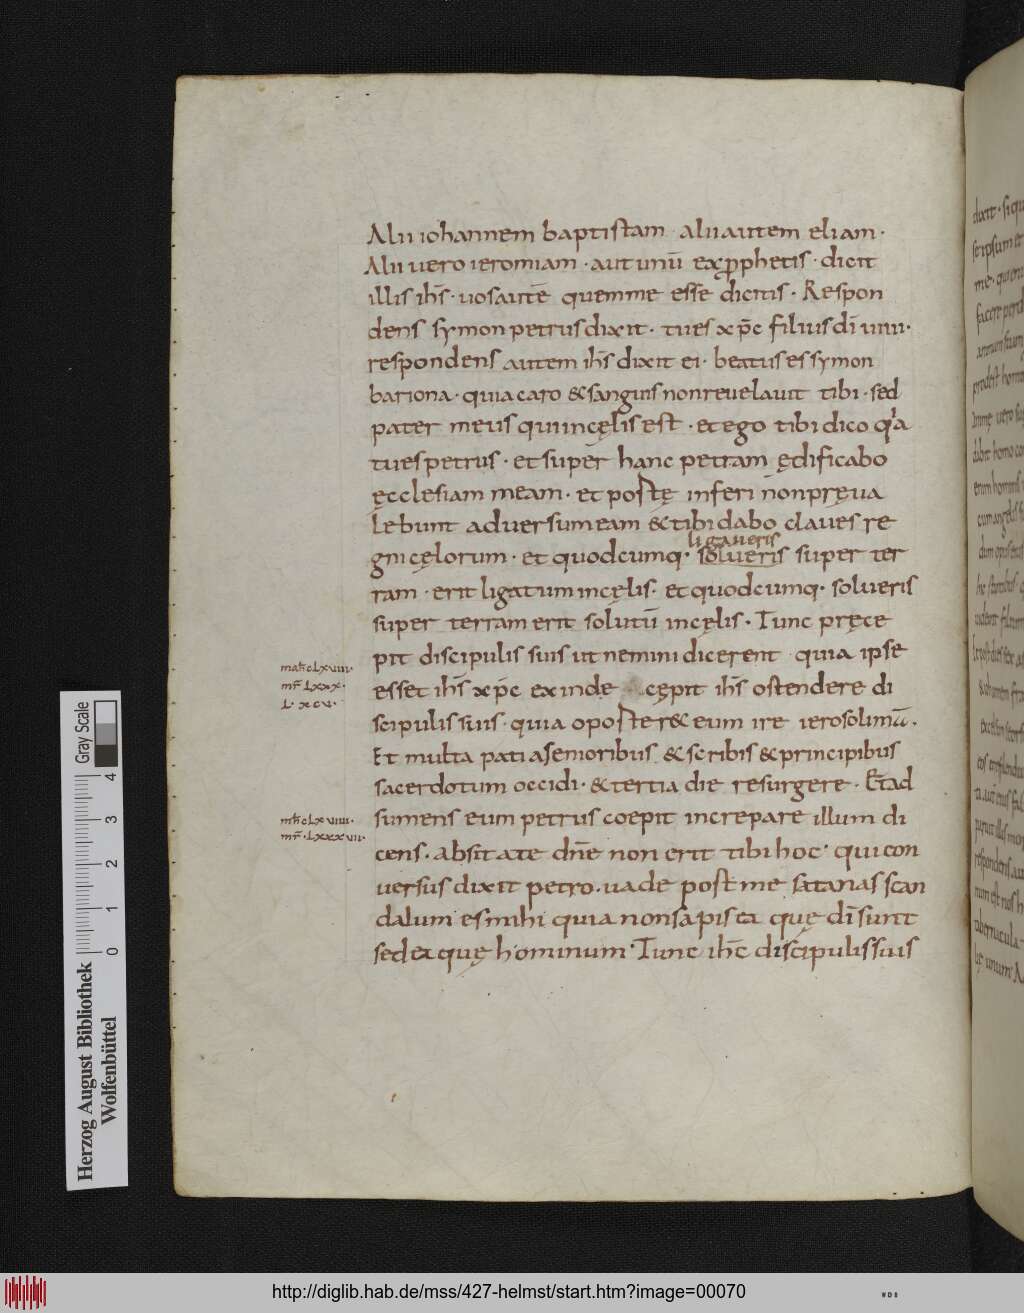 Alii iohannem baptistam · alii autem eliam ·
Alii uero ieromiam · aut unū ex ꝓphetis · dicit
illis ihs̄ · uos autē quem me esse dicitis · Respon
dens symon petrus dixit · tu es xp̄c filius dī uiui ·
respondens autem ihs̄ dixit ei · beatus es symon
bariona · quia caro & sanguis non reuelauit tibi · sed
pater meus qui in cęlis est · et ego tibi dico qⁱa
tu es petrus · et super hanc petram ędificabo
ęcclesiam meam · et portę inferi non pręua
lebunt aduersum eam & tibi dabo claues re
ligaueris
gni cęlorum · et quodcumq· solueris super ter
ram · erit ligatum in cęlis · et quodcumq· solueris
super terram erit solutū in cęlis · Tunc pręce
pit discipulis suis ut nemini dicerent quia ipse
mat̄ clxviiii ·
esset ihs̄ xp̄c exinde cępit ihs̄ ostendere di
mr̄ lxxx ·
l · xcv ·
scipulis suis · quia oporter& eum ire ierosolimā ·
Et multa pati a senioribus & scribis & principibus
sacerdotum occidi · & tertia die resurgere · Et ad
mt̄ clxviiii ·
sumens eum petrus coepit increpare illum di
mr̄ · lxxxvii ·
cens · absit a te dn̄e non erit tibi hoc · qui con
uersus dixit petro · uade post me satanas scan
dalum es mihi quia non sapis ea quę dī sunt
sed ea quę hominum · Tunc ihc̄ discipulis suis
dixit · si qu
se ipsum et
me · qui en
Gray Scale
0 1 2 3 4
Herzog August Bibliothek
Wolfenbüttel
http://diglib.hab.de/mss/427-helmst/start.htm?image=00070